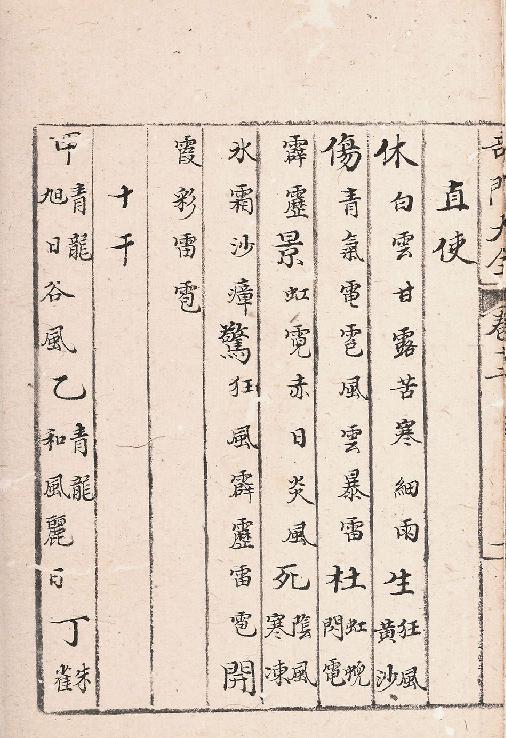 奇門大全 卷十二
直使
休 白雲甘露苦寒細雨 生 狂風黃沙
傷 青氣電雹風雲暴雷 杜 虹蜺閃電
霹靂 景 虹霓赤日炎風 死 陰風寒凍
氷霜沙瘴 驚 狂風霹靂雷雹 開
霞彩雷雹
十干
甲 青龍旭日谷風 乙 青龍和風麗日 丁 朱雀